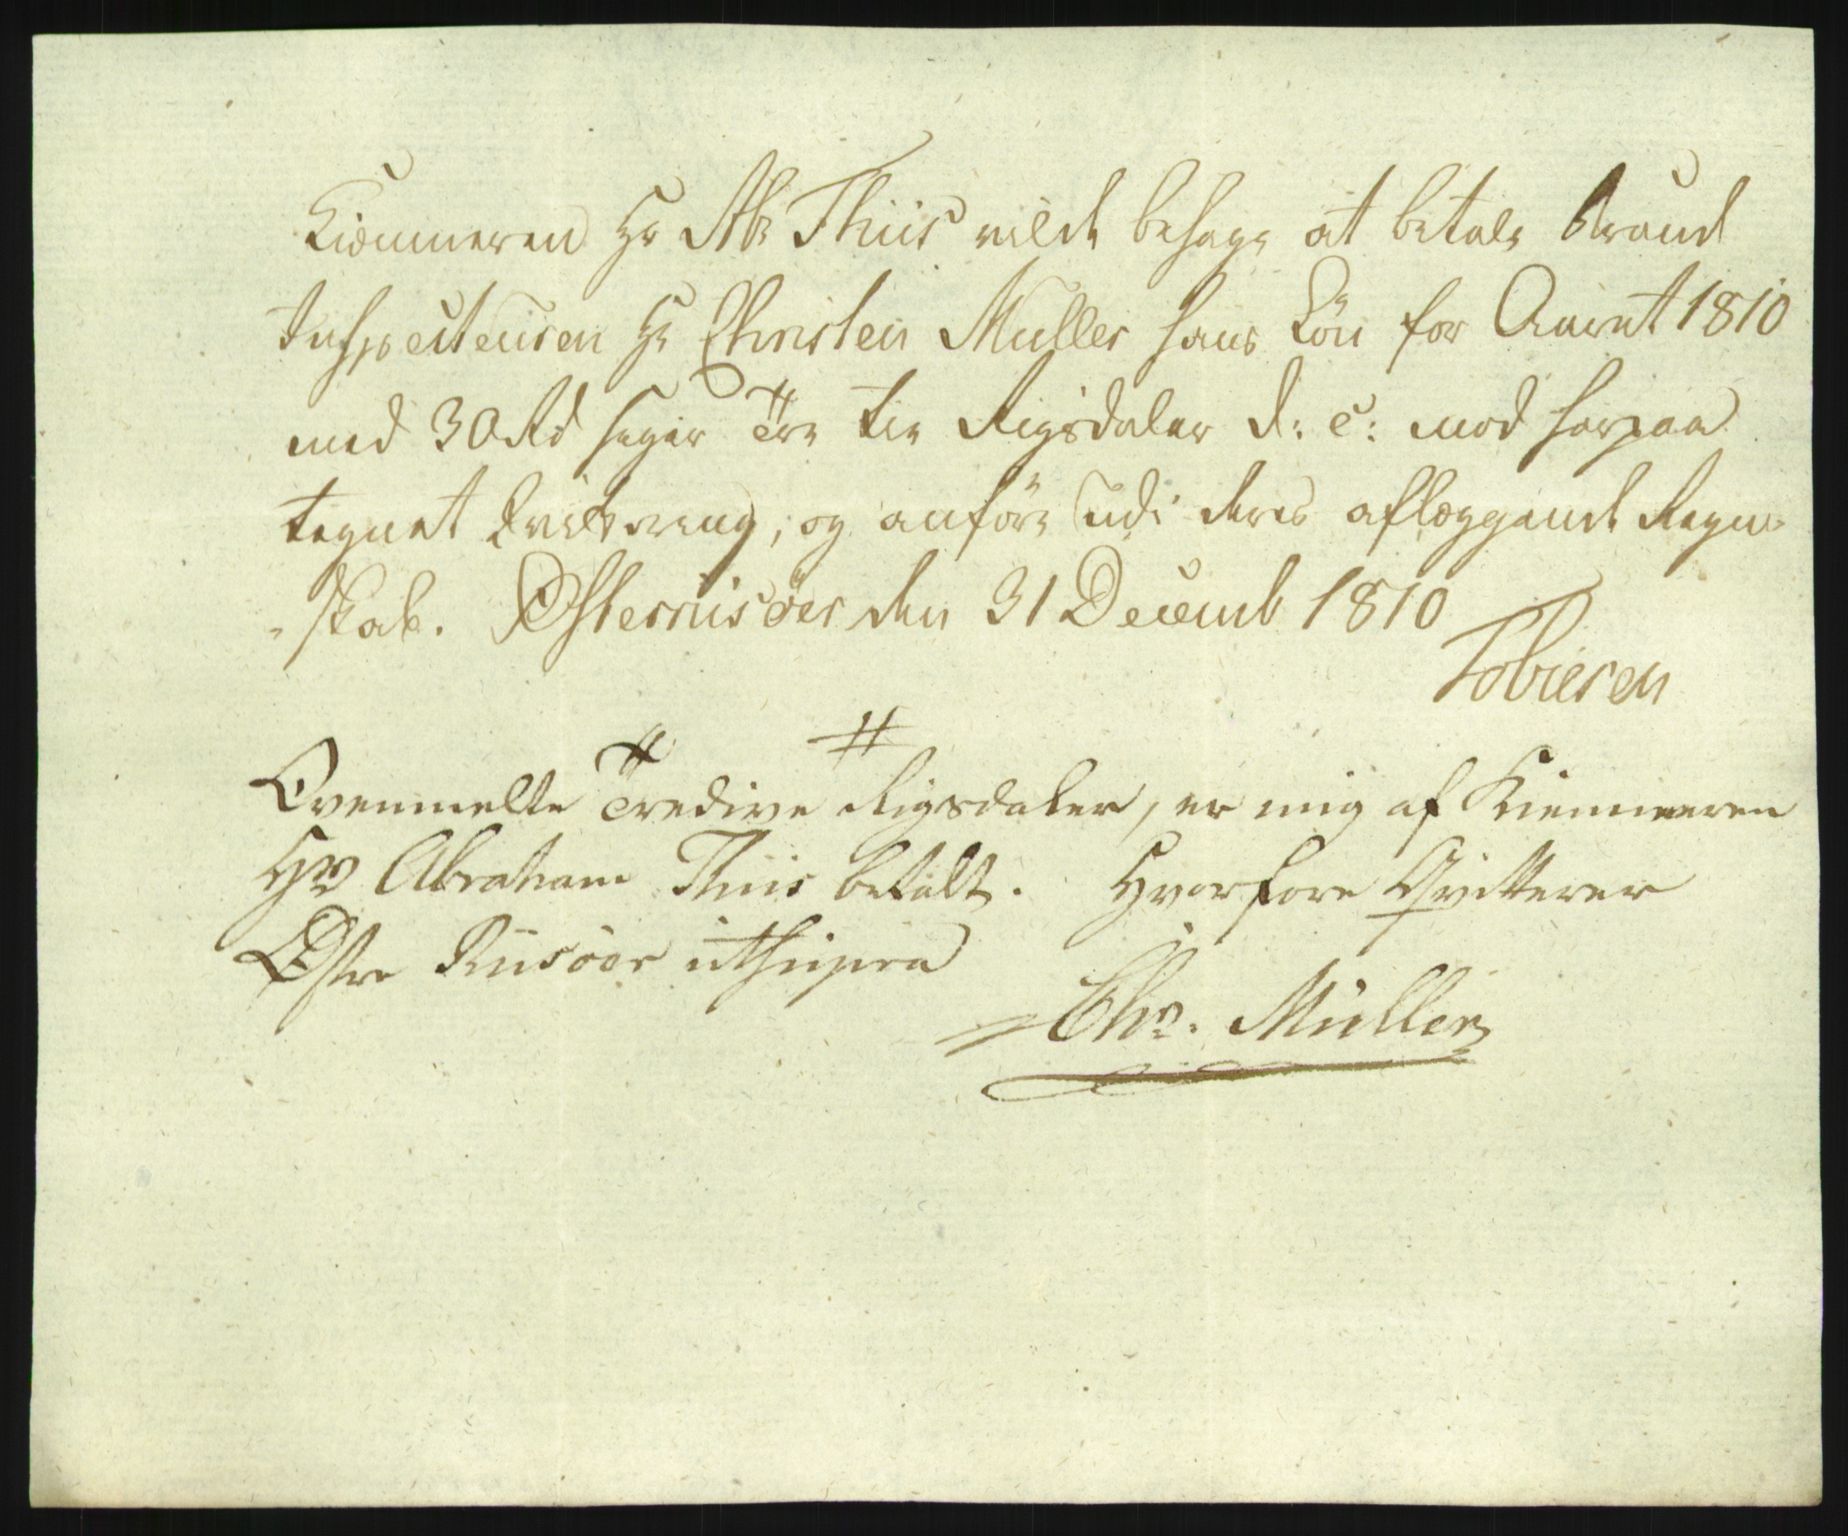 Kiæmneren Hr Ab: Thiis vilde behage at betale Brand
Inspecteuren Hr Christen Muller hans Lön for Aaret 1810
med 30 Rd siger Tre tie Rigsdaler d: c: mod herpaa
tegnet Qvittering, og anföre udi deres aflæggende Regn-
-skab. Østerriisöer den 31 Decemb 1810
Tobiesen
Ovenmelte Tredive Rigsdaler, er mig af Kiemneren
Hr Abraham Thiis betalt. Hvorfore Qvitterer
Østre Riisöer utsupra
Chr. Müller